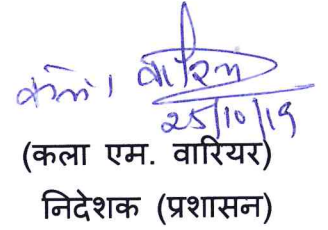 कला वारियर
25/10/19
(कला एम. वारियर)
निदेशक (प्रशासन)